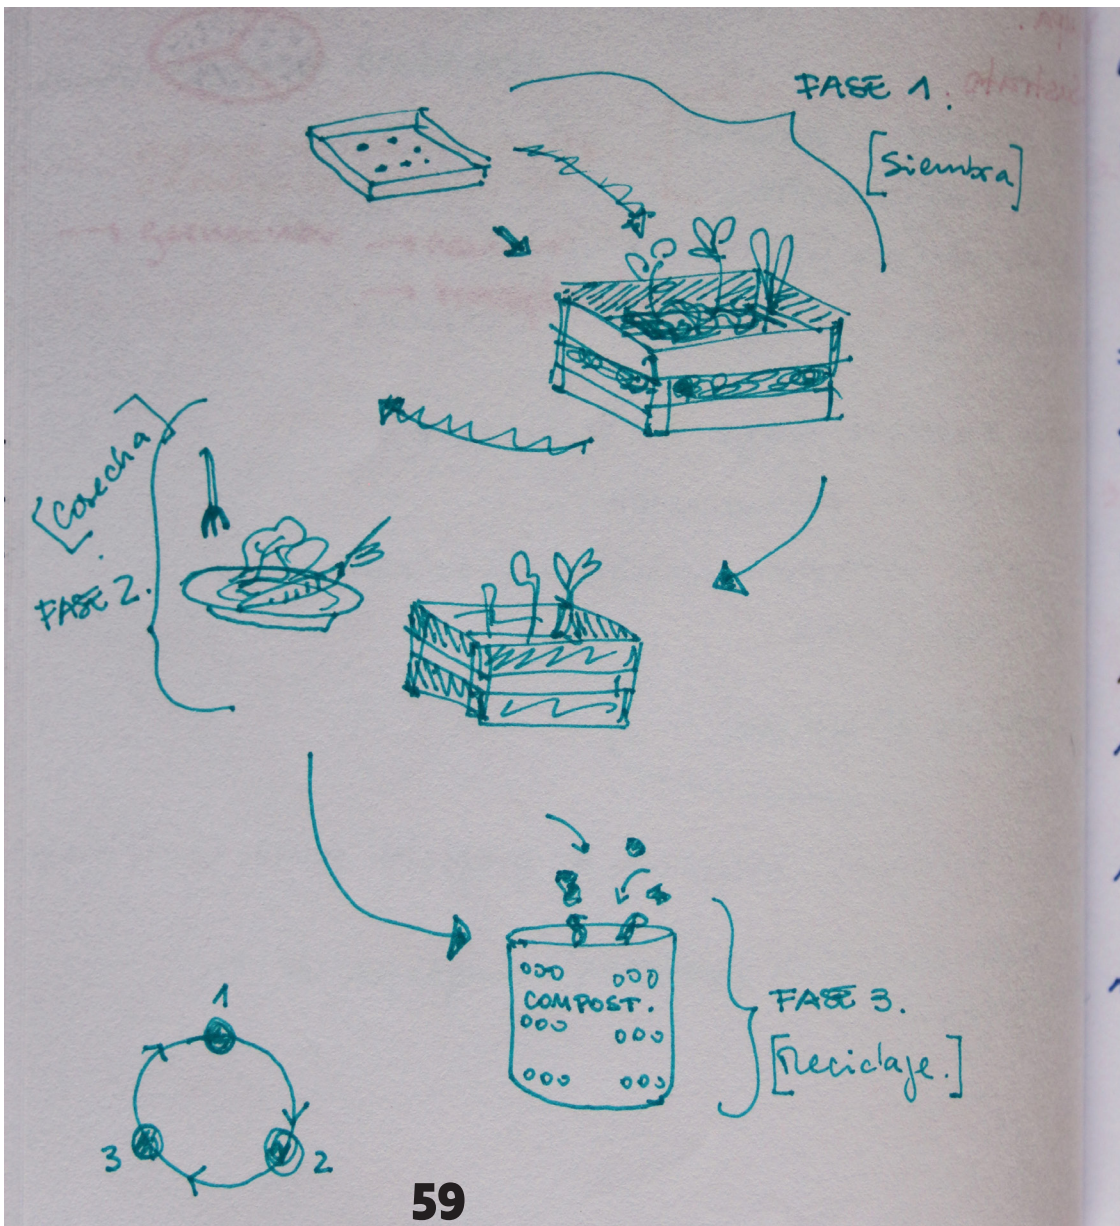 FASE 1.
[Siembra]
[Cosecha]
FASE 2.
COMPOST.
FASE 3.
[Reciclaje.]
1
2
3
59